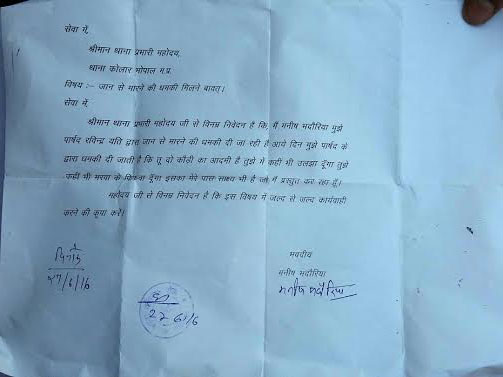 सेवा में,
श्रीमान थाना प्रभारी महोदय,
थाना कोलार भोपाल म.प्र.
विषय :– जान से मारने की धमकी मिलने बावत्।
सेवा में,
श्रीमान थाना प्रभारी महोदय जी से विनम्र निवेदन है कि, मैं मनीष भदौरिया मुझे
पार्षद रविन्द्र यति द्वारा जान से मारने की धमकी दी जा रही है आये दिन मुझे पार्षद के
द्वारा धमकी दी जाती है कि तू दो कौड़ी का आदमी है तुझे में कहीं भी उलझा दूंगा तुझे
कहीं भी मरवा के दूंगा इसका मेरे पास साक्ष्य भी है जो में प्रस्तुत कर रहा हूँ।
महोदय जी से विनम्र निवेदन है कि इस विषय में जल्द से जल्द कार्यवाही
करने की कृपा करें।
भवदीय
मनीष भदौरिया
मनीष भदौरिया
दिनांक
27/6/16
27-6/16